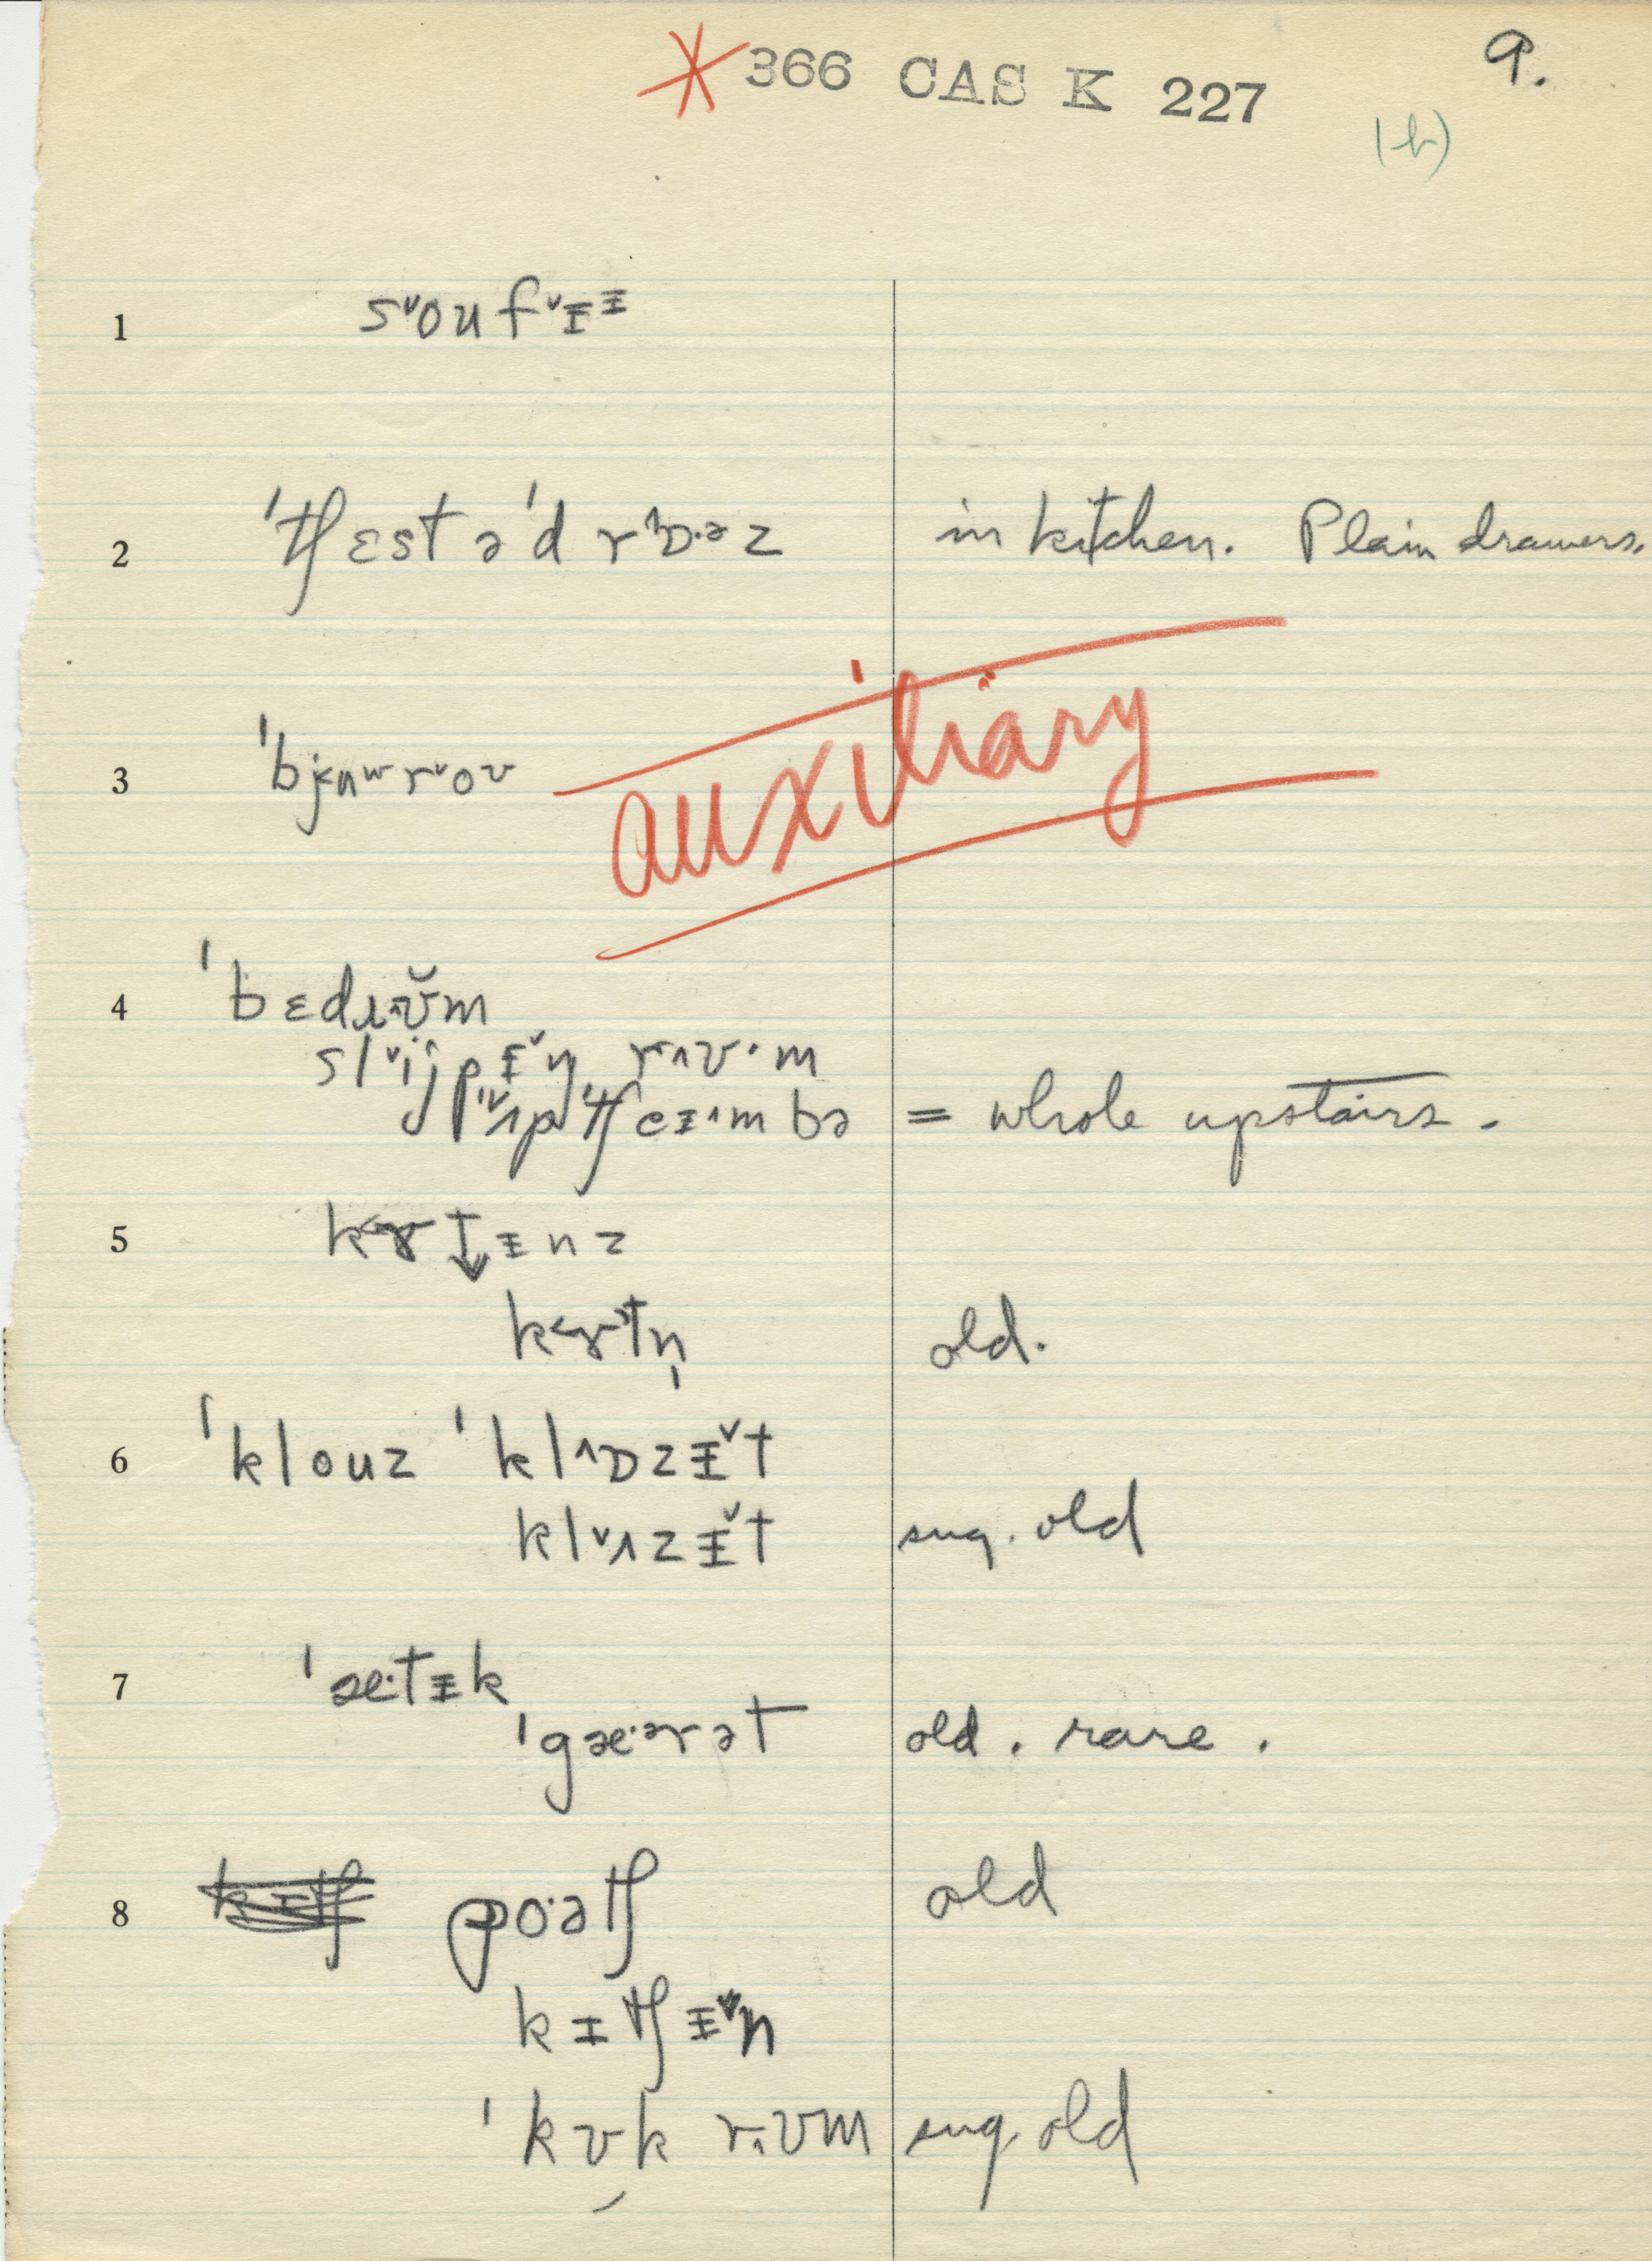 * 366 CAS K 227
9.
(b)
1 sᵛoufᵛᵻᵻ
2 ˈtʃɛst əˈd rˆɒ·ᵊz in kitchen. Plain drawers.
3 ˈbjʉʷrᵛoʊ
auxiliary
4 ˈbɛdɹʊ̆m
slᵛijpᵻᵛŋ rʌʊ·m
ˈʌpˈtʃeɪˆmbə = whole upstairs.
5 kɤtᵻnz
kɤtn̩ old.
6 ˈklouz ˈklˆɒzᵻᵛt
klᵛʌzᵻᵛt sug. old
7 ˈæ·tᵻk
ˈgæ·ᵊrət old. rare.
8 poˑətʃ old
kɪtʃᵻᵛn
ˈkʊk rʊm sug. old